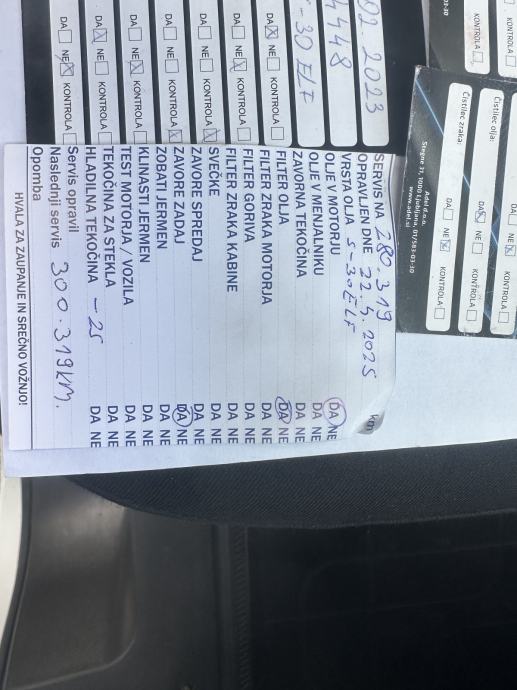 SERVIS NA 280.319 km
OPRAVLJEN DNE 22.5.2025
VRSTA OLJA 5-30 ELF
OLJE V MOTORJU DA NE
OLJE V MENJALNIKU DA NE
ZAVORNA TEKOČINA DA NE
FILTER OLJA DA NE
FILTER ZRAKA MOTORJA DA NE
FILTER GORIVA DA NE
FILTER ZRAKA KABINE DA NE
SVEČKE DA NE
ZAVORE SPREDAJ DA NE
ZAVORE ZADAJ DA NE
ZOBATI JERMEN DA NE
KLINASTI JERMEN DA NE
TEST MOTORJA / VOZILA DA NE
TEKOČINA ZA STEKLA DA NE
HLADILNA TEKOČINA -25 DA NE
Servis opravil
Naslednji servis 300.319 KM.
Opomba
HVALA ZA ZAUPANJE IN SREČNO VOŽNJO!
02.2023
4448
-30 ELF
DA NE KONTROLA
DA NE KONTROLA
DA NE KONTROLA
DA NE KONTROLA
DA NE KONTROLA
DA NE KONTROLA
DA NE KONTROLA
KONTROLA
Čistilec olja: DA NE KONTROLA
Čistilec zraka: DA NE KONTROLA
Adel d.o.o.
Stegne 31, 1000 Ljubljana, 01/583-03-30
www.adel.si